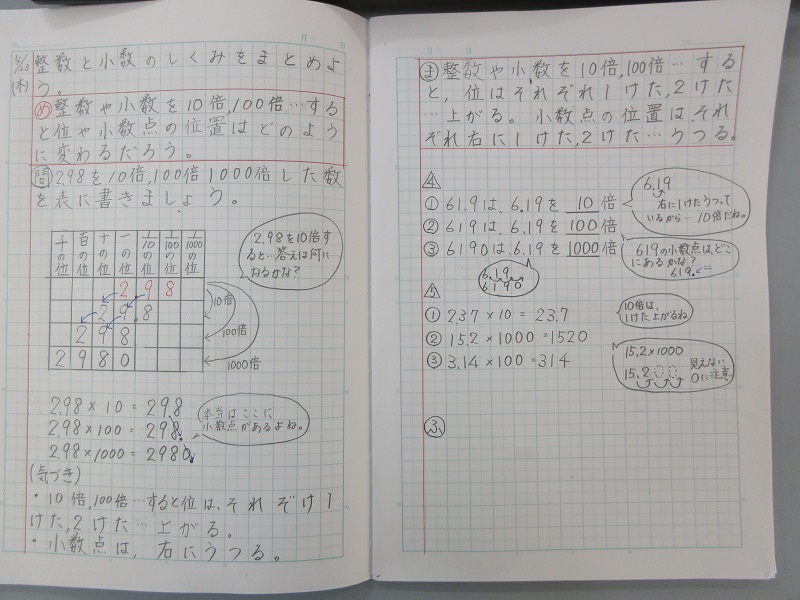 整数と小数のしくみをまとめよ
(木) う。
め 整数や小数を10倍,100倍…する
と位や小数点の位置はどのよう
に変わるだろう。
問 2.98を10倍,100倍1000倍した数
を表に書きましょう。
千の位 百の位 十の位 一の位 1/10の位 1/100の位 1/1000の位
2 9 8
2 9.8
2 9 8
2 9 8 0
10倍
100倍
1000倍
2.98を10倍す
ると…答えは何に
なるかな?
2.98 × 10 = 29.8
2.98 × 100 = 298.
2.98 × 1000 = 2980.
本当はここに
小数点があるよね。
(気づき)
・10倍,100倍…すると位は、それぞけ1
けた,2けた…上がる。
・小数点は、右にうつる。
ま 整数や小数を10倍,100倍…する
と、位はそれぞれ1けた,2けた
…上がる。小数点の位置は、それ
ぞれ右に1けた,2けた…うつる。
4
① 61.9は、6.19を 10 倍
② 619は、6.19を 100 倍
③ 6190は、6.19を 1000 倍
6.19
右に1けたうつって
いるから…10倍だね。
619の小数点は、どこ
にあるかな?
619.
6.19
6190
5
① 2.37 × 10 = 23.7
② 15.2 × 1000 = 1520
③ 3.14 × 100 = 314
10倍は、
1けた上がるね
15.2×1000
15.200
見えない
0に注意
ふ